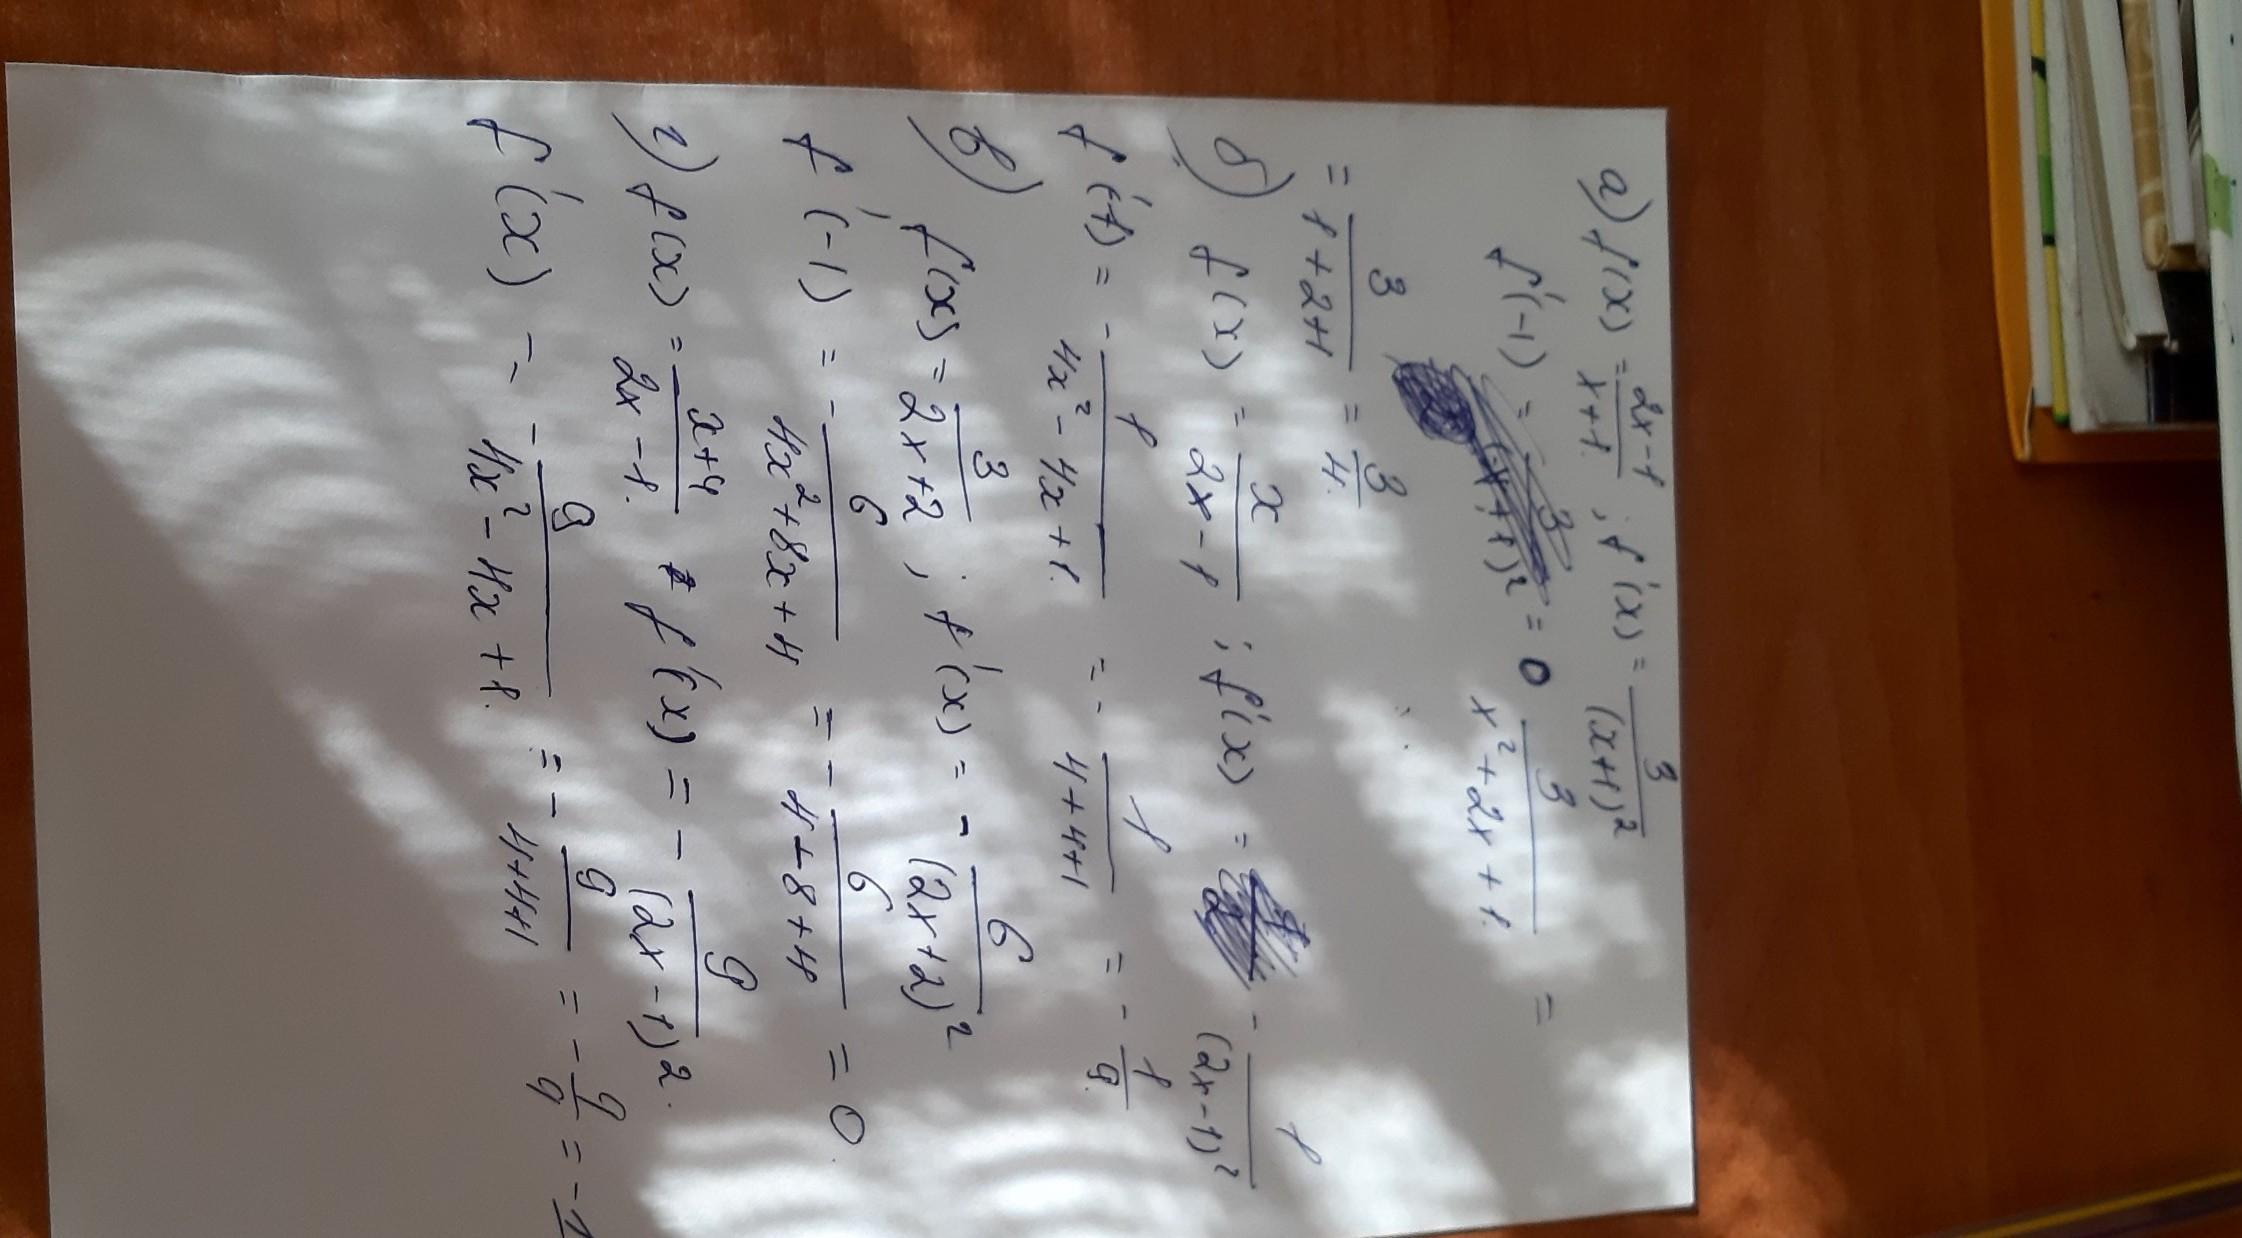 а) f(x) = (2x-1)/(x+1) ; f'(x) = 3/(x+1)²
f'(-1) = = 0 3/(x²+2x+1) =
= 3/(1+2+1) = 3/4.
б) f(x) = x/(2x-1) ; f'(x) = - 1/(2x-1)²
f'(-1) = - 1/(4x²-4x+1) = - 1/(4+4+1) = - 1/9
в) f(x) = 3/(2x+2) ; f'(x) = - 6/(2x+2)²
f'(-1) = - 6/(4x²+8x+4) = - 6/(4+8+4) = 0
г) f(x) = (x+4)/(2x-1) f'(x) = - 9/(2x-1)².
f'(x) = - 9/(4x²-4x+1) = - 9/(4+4+1) = - 9/9 = -1